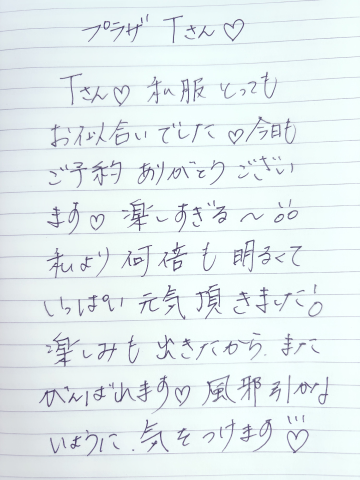 プラザ Tさん♡
Tさん♡ 私服 とっても
お似合いでした♡今日も
ご予約 ありがとうござい
ます♡ 楽しすぎる〜
私より 何倍も 明るくて
いっぱい 元気 頂きました
楽しみも 出きたから、また
がんばれます♡ 風邪引かな
いように、気をつけます♡